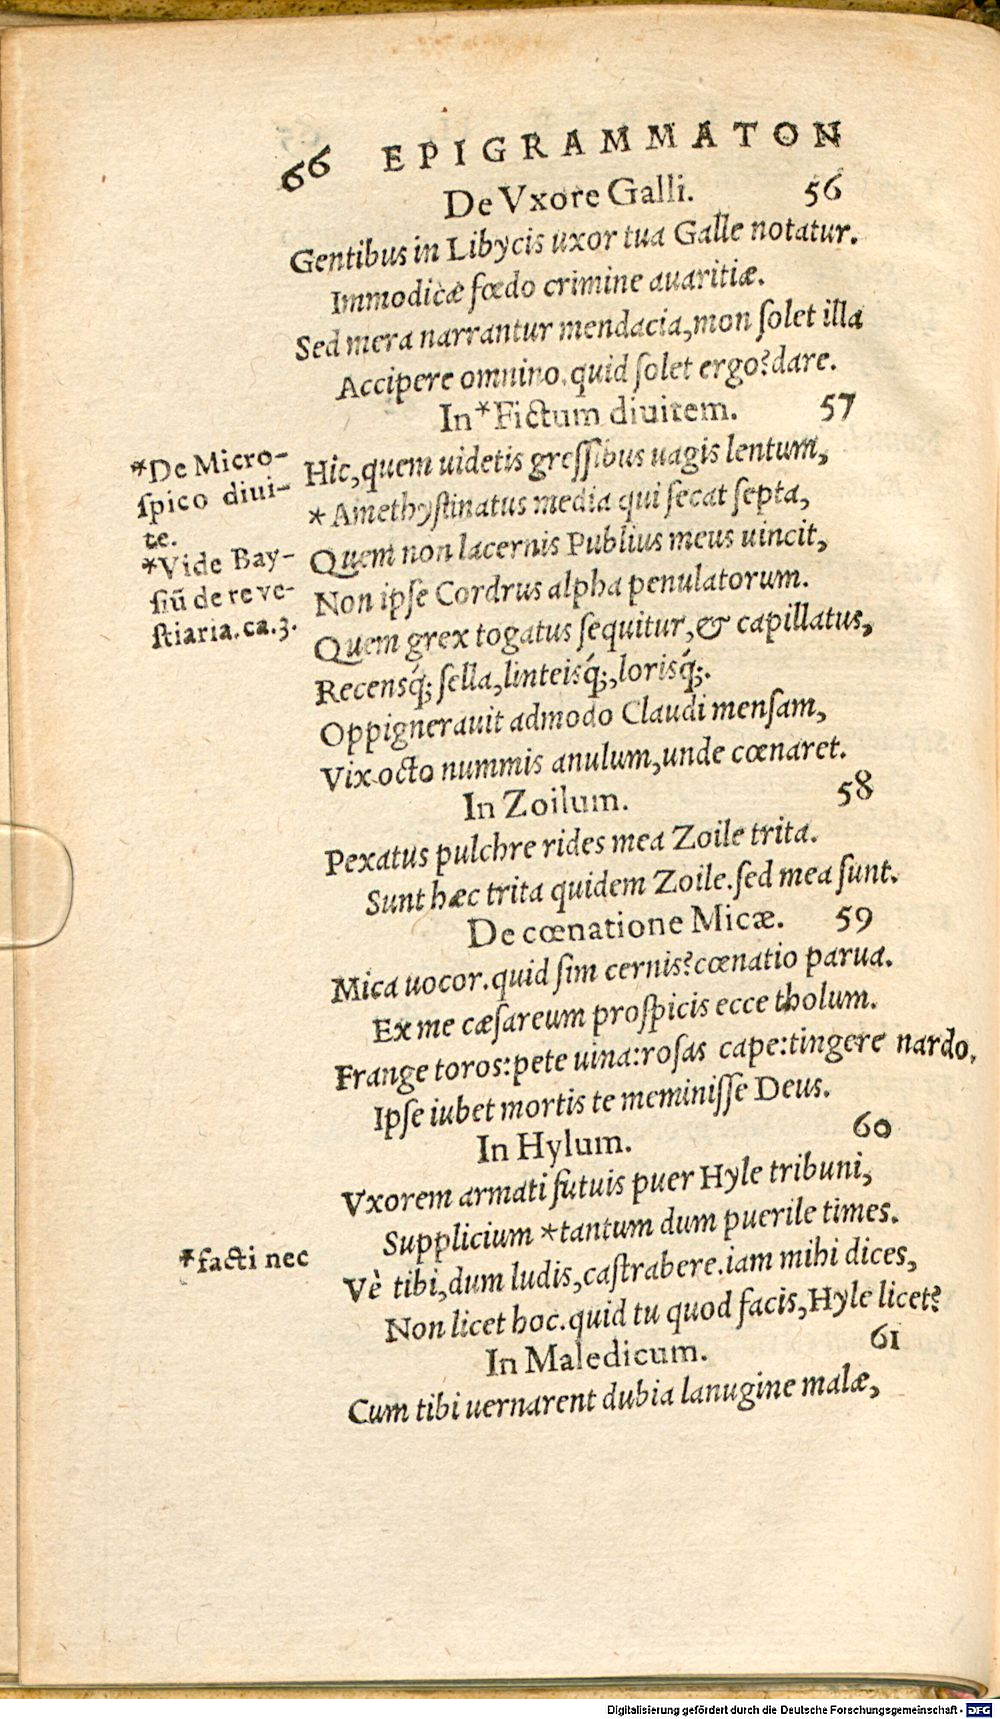 66 EPIGRAMMATON
De Vxore Galli. 56
Gentibus in Libycis uxor tua Galle notatur.
Immodicæ fœdo crimine auaritiæ.
Sed mera narrantur mendacia, mon ſolet illa
Accipere omnino. quid ſolet ergo? dare.
In *Fictum diuitem. 57
*De Micro-
ſpico diui-
te.
*Vide Bay-
ſiū de re ve-
ſtiaria. ca. 3.
Hic, quem uidetis greſſibus uagis lentum,
*Amethyſtinatus media qui ſecat ſepta,
Quem non lacernis Publius meus uincit,
Non ipſe Cordrus alpha penulatorum.
Quem grex togatus ſequitur, & capillatus,
Recensq́; ſella, linteisq́;, lorisq́;.
Oppignerauit admodo Claudi menſam,
Vix octo nummis anulum, unde cœnaret.
In Zoilum. 58
Pexatus pulchre rides mea Zoile trita.
Sunt hæc trita quidem Zoile. ſed mea ſunt.
De cœnatione Micæ. 59
Mica uocor. quid ſim cernis? cœnatio parua.
Ex me cæſareum proſpicis ecce tholum.
Frange toros: pete uina: roſas cape: tingere nardo,
Ipſe iubet mortis te meminiſſe Deus.
In Hylum. 60
Vxorem armati futuis puer Hyle tribuni,
Supplicium *tantum dum puerile times.
*facti nec
Vè tibi, dum ludis, caſtrabere. iam mihi dices,
Non licet hoc. quid tu quod facis, Hyle licet?
In Maledicum. 61
Cum tibi uernarent dubia lanugine malæ,
Digitalisierung gefördert durch die Deutsche Forschungsgemeinschaft - DFG